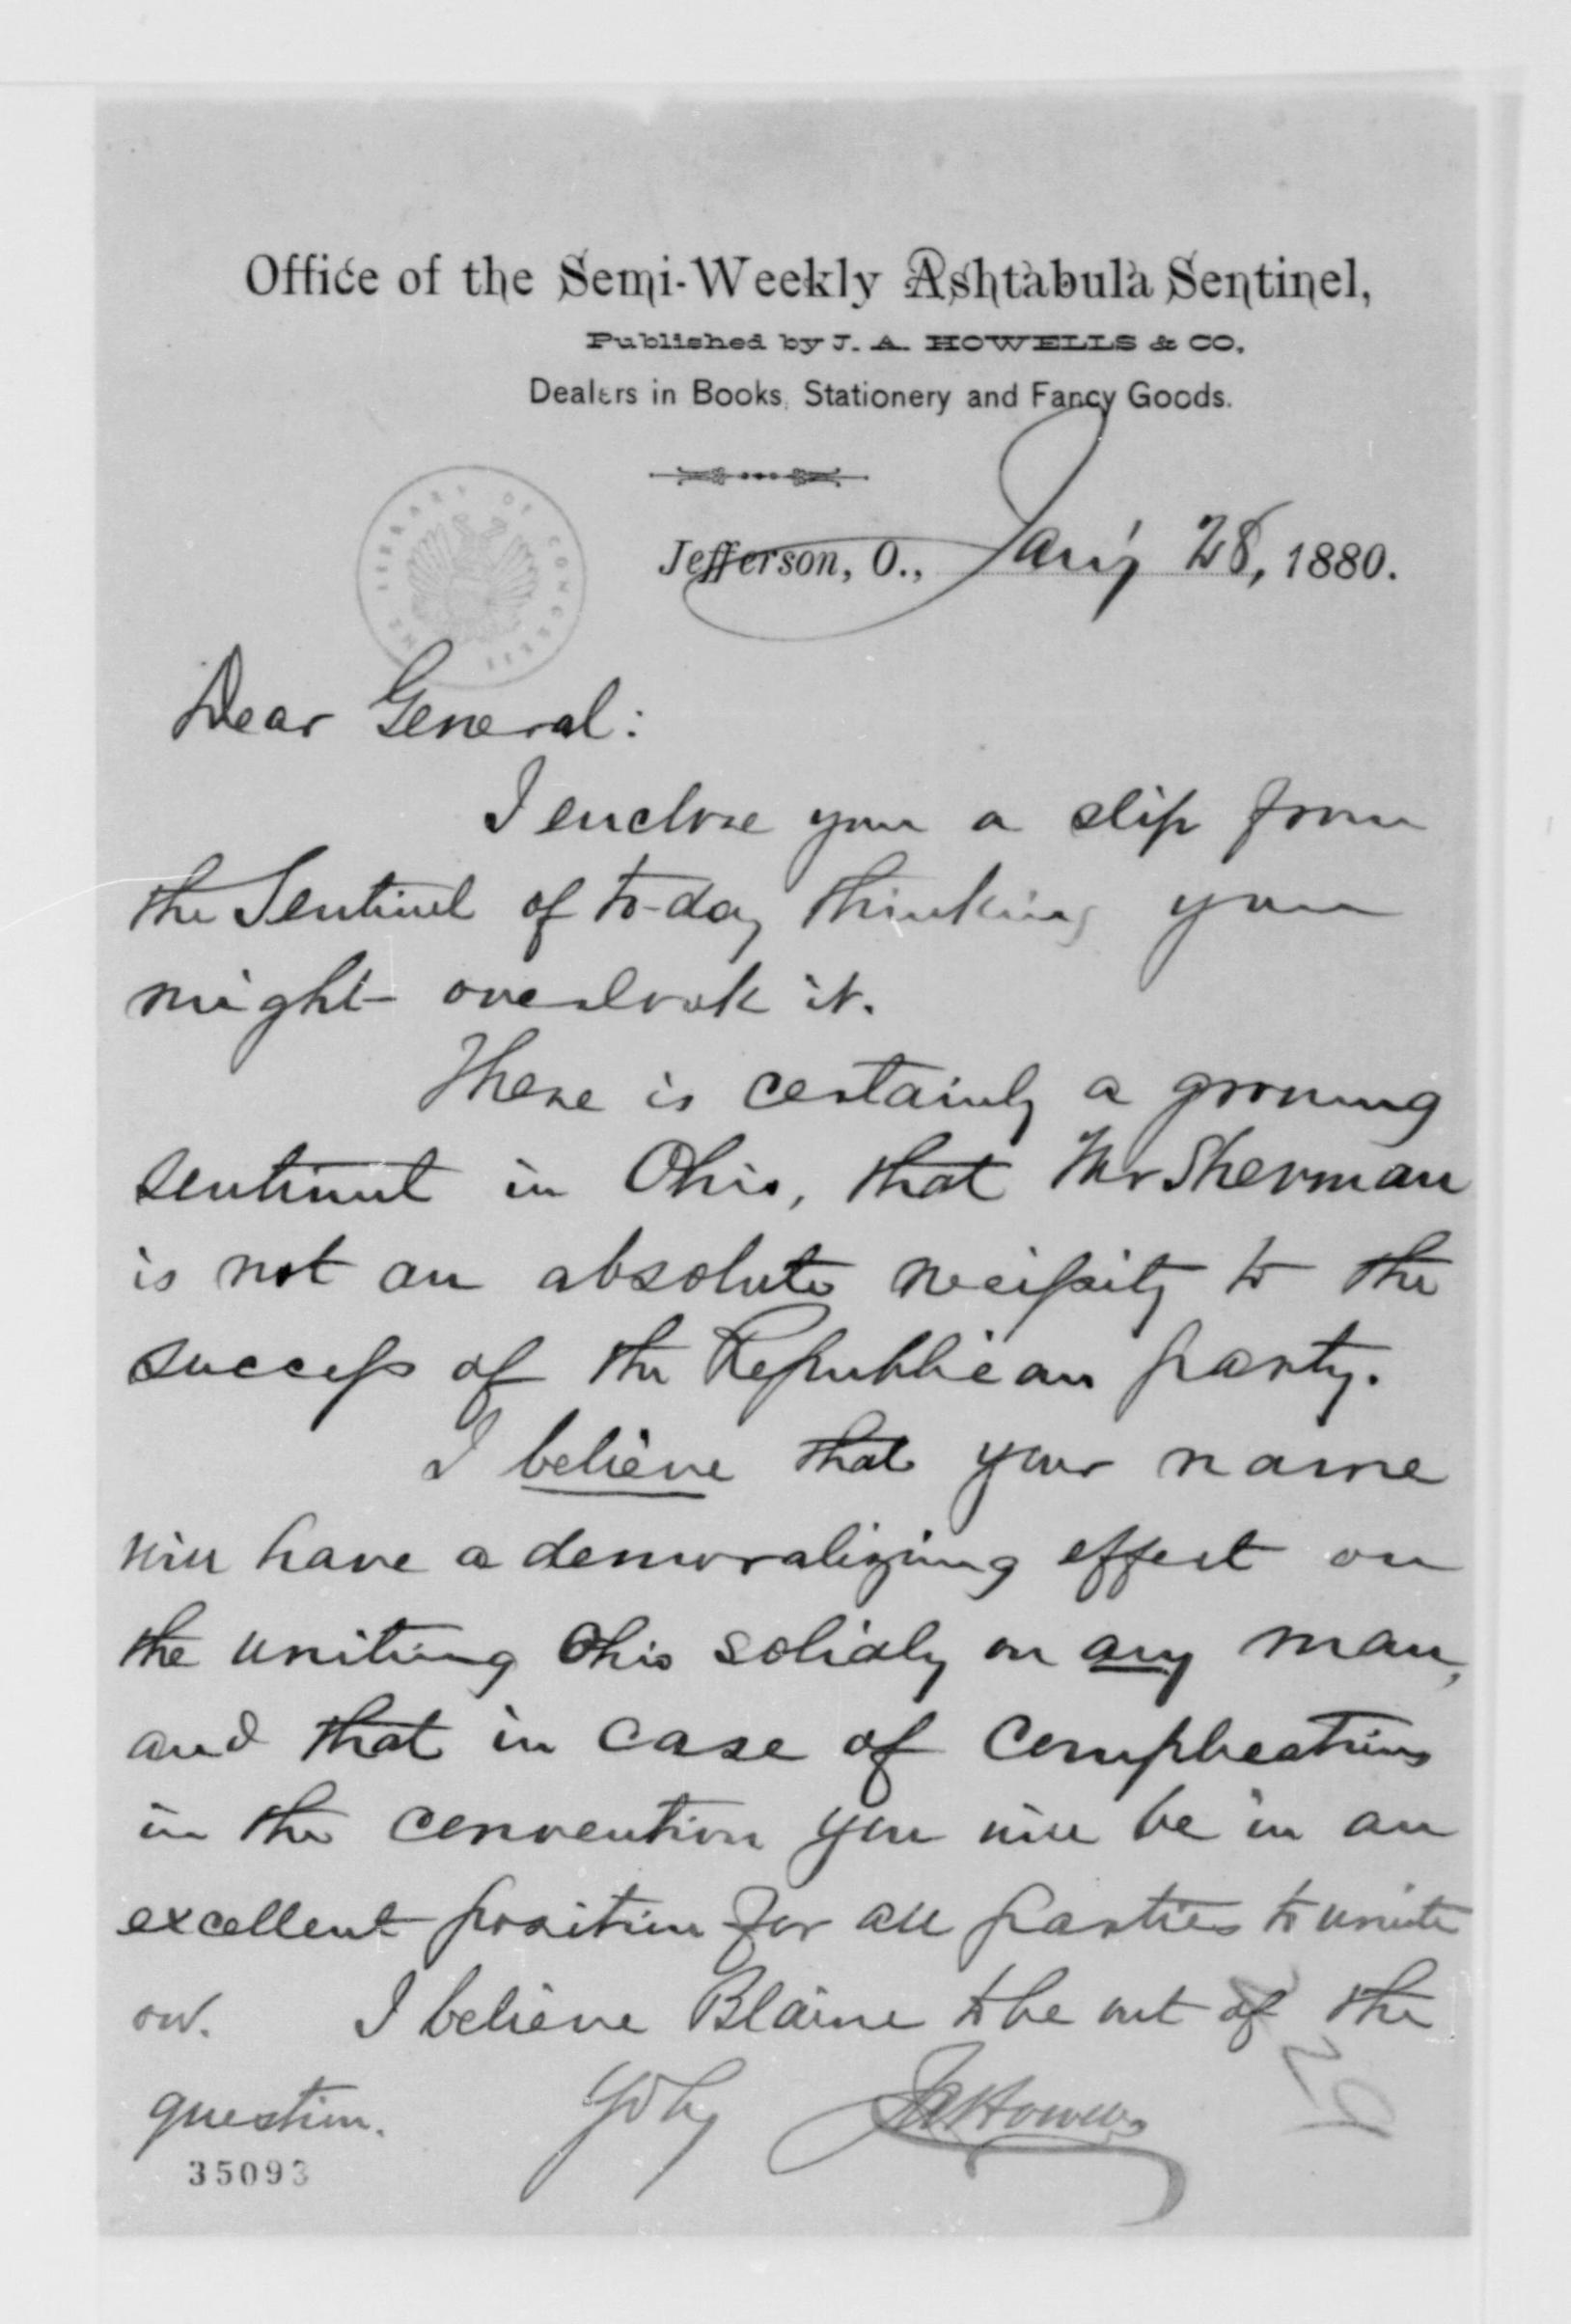 Office of the Semi-Weekly Ashtabula Sentinel,
Published by J. A. HOWELLS & CO.
Dealers in Books, Stationery and Fancy Goods.
THE LIBRARY OF CONGRESS
Jefferson, O., Jan'y 28, 1880.
Dear General:
I enclose you a slip from
the Sentinel of to-day thinking you
might overlook it.
There is certainly a growing
sentiment in Ohio, that Mr Sherman
is not an absolute necissity to the
success of the Republican party.
I believe that your name
will have a demoralizing effect on
the uniting Ohio solidly on any man,
and that in case of complications
in the convention you will be in an
excellent position for all parties to unite
on. I believe Blaine to be out of the
question. JAHowells
35093